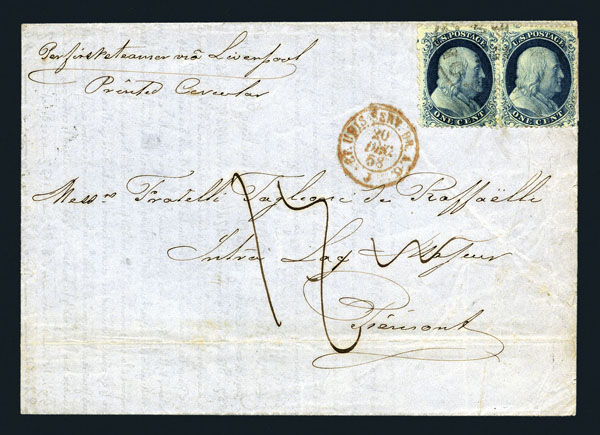 Per first steamer via Liverpool
Printed Circular
U.S. POSTAGE
ONE CENT
U.S. POSTAGE
ONE CENT
ET. UNIS. SERV. BR. A. C.
20
DEC.
58
Messrs Fratelli Taglioni de Raffaëlli
Intra Lag
Piémont